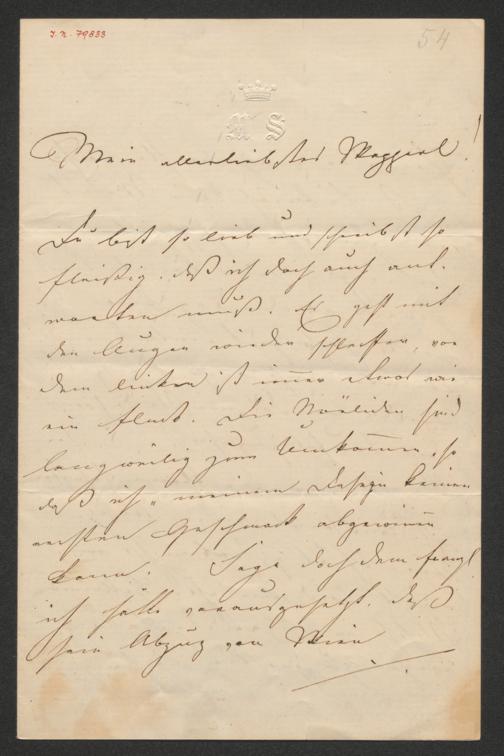 J. N. 79833
54
M S
Mein allerliebstes Wapperl!
Du bist so lieb und schreibst so
fleißig, daß ich doch auch ant-
worten muß. Es geht mit
den Augen wieder schlechter, vor
dem linken ist immer etwas wie
ein Fleck. Die sind
langweilig zum Umkommen, so
daß ich meinem Dasein keinen
rechten Geschmack abgewinnen
kann. Sage doch dem Franzl
ich hätte vorausgesetzt, daß
sein Abzug von Wien